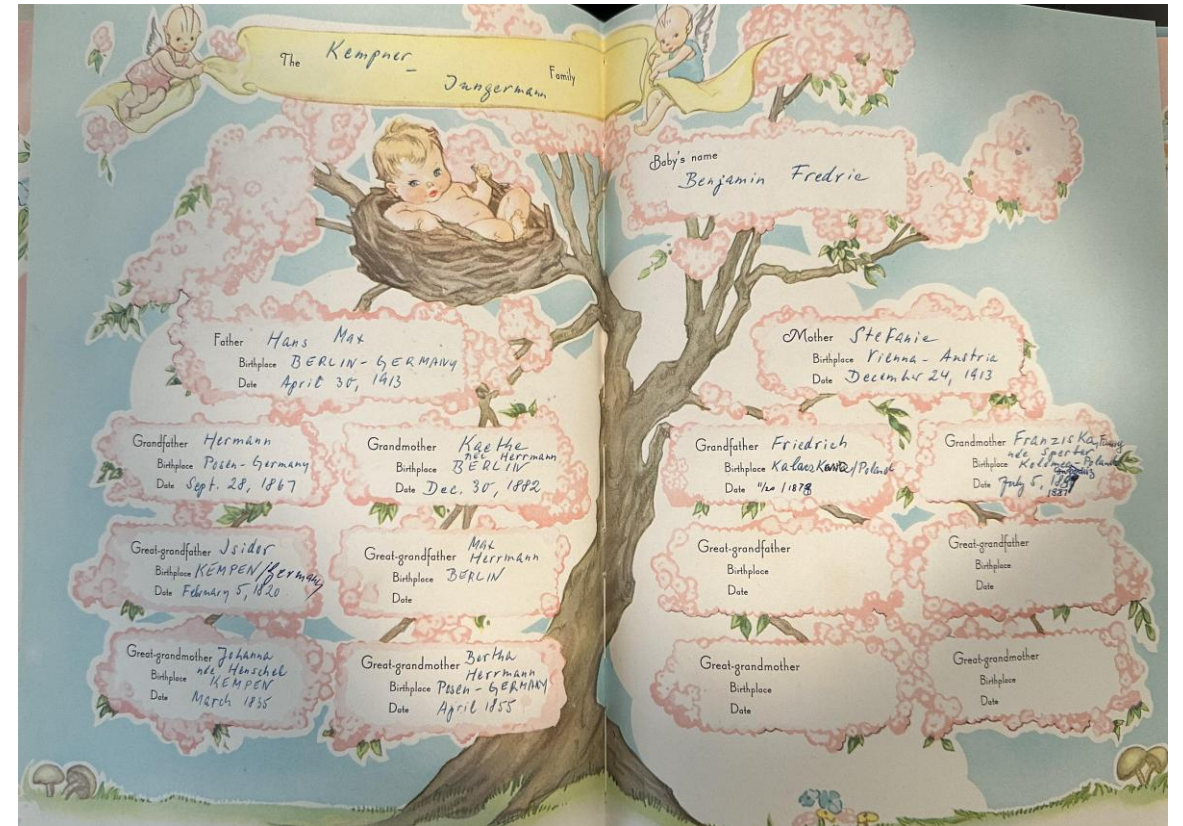 The Kempner-
Jungermann Family
Baby's name
Benjamin Fredric
Father Hans Max
Birthplace BERLIN-GERMANY
Date April 30, 1913
Mother Stefanie
Birthplace Vienna-Austria
Date December 24, 1913
Grandfather Hermann
Birthplace Posen-Germany
Date Sept. 28, 1867
Grandmother Kaethe
née Herrmann
Birthplace BERLIN
Date Dec. 30, 1882
Grandfather Friedrich
Birthplace /Poland
Date 11/20/1878
Grandmother Franziska, Fanny
née Sperber
Birthplace Kolomea-Poland
Date July 5,
1887
Great-grandfather Isidor
Birthplace KEMPEN/Germany
Date February 5, 1820
Great-grandfather Max
Herrmann
Birthplace BERLIN
Date
Great-grandfather
Birthplace
Date
Great-grandfather
Birthplace
Date
Great-grandmother Johanna
née Henschel
Birthplace KEMPEN
Date March 1835
Great-grandmother Bertha
Herrmann
Birthplace Posen-GERMANY
Date April 1855
Great-grandmother
Birthplace
Date
Great-grandmother
Birthplace
Date